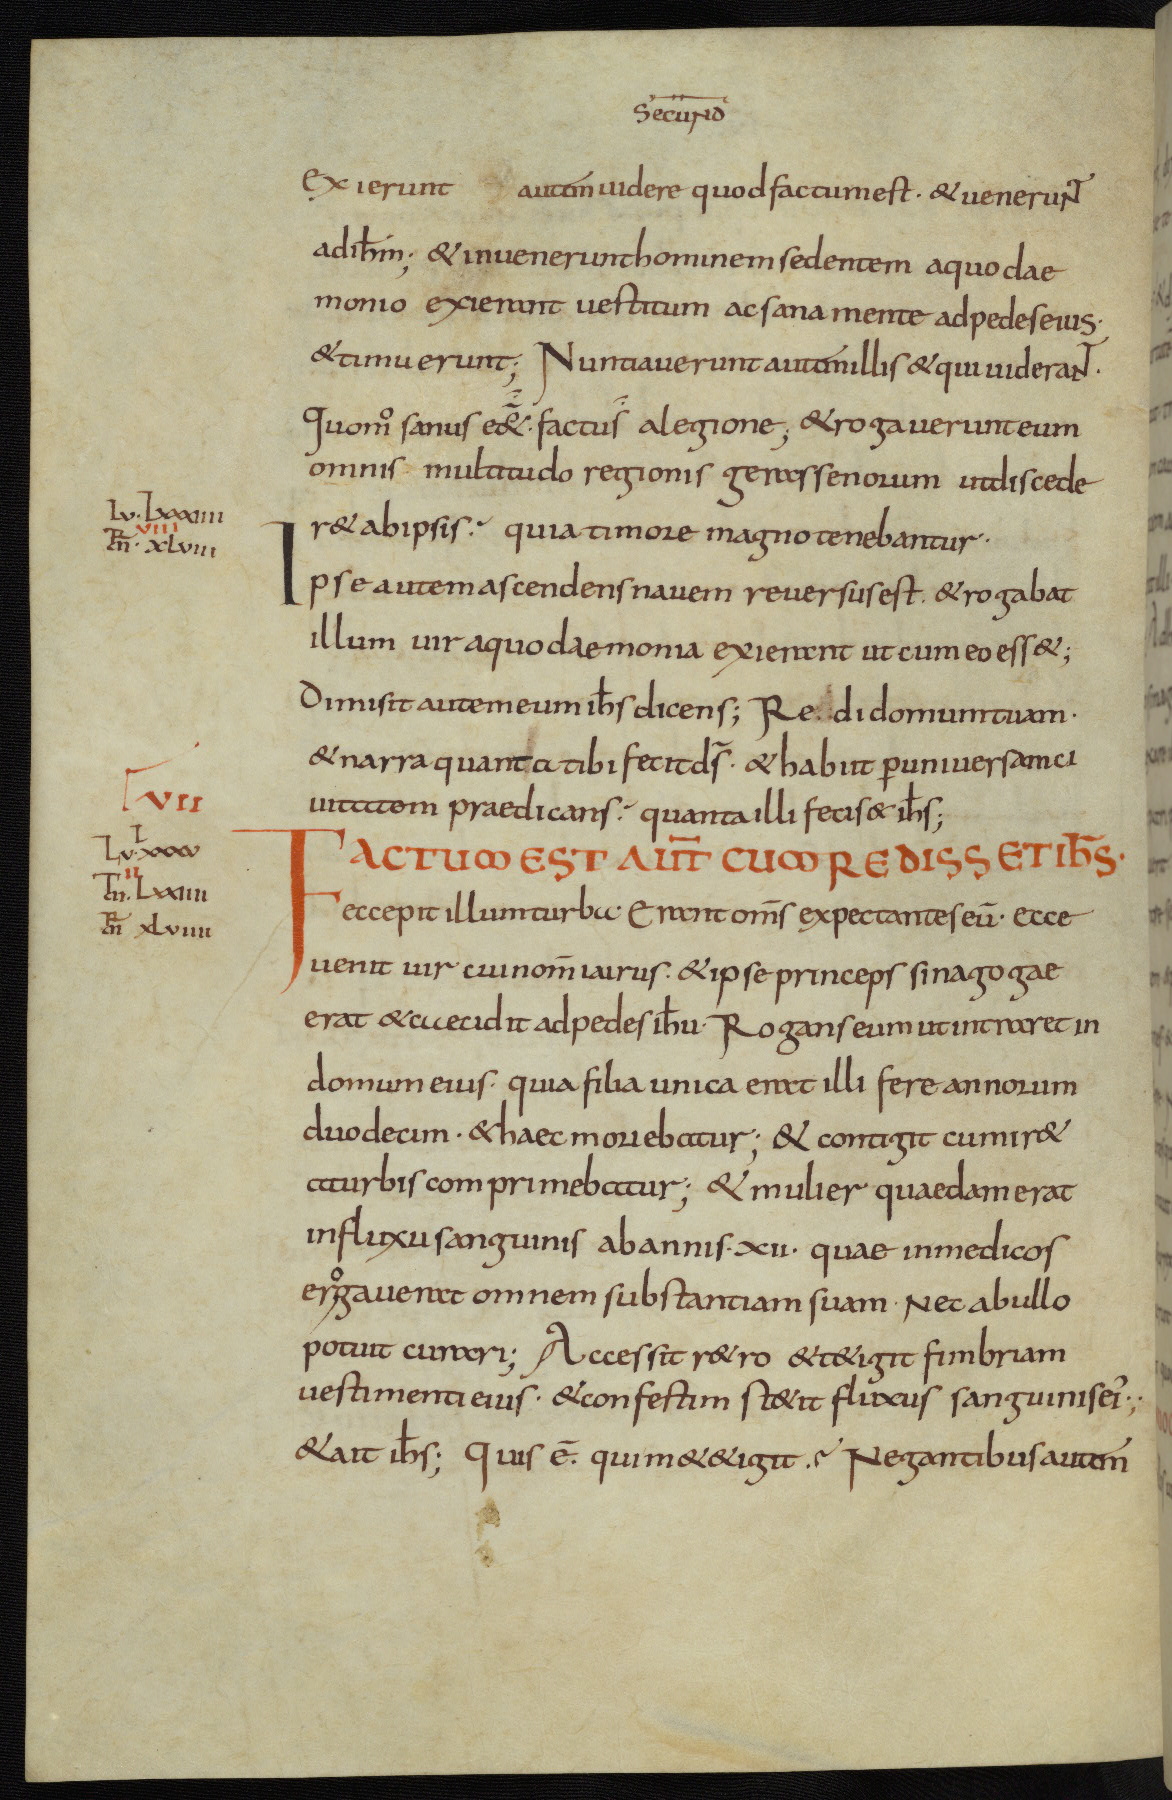 Secund̄
Exierunt autem̄ uidere quod factum est · & uenerunt
ad ih̄m; & inuenerunt hominem sedentem a quo dae
monio exierant uestitum ac sana mente ad pedes eius ·
& timuerunt; Nuntiauerunt autem̄ illis & qui uiderant ·
Quomo sanus e&̄ · factus̄ a legione; & rogauerunt eum
omnis multitudo regionis gerassenorum ut discede
Lu · Lxxxiiii
r& ab ipsis · quia timore magno tenebantur ·
VIII
m̄r · xLuiii
Ipse autem ascendens nauem reuersus est · & rogabat
illum uir a quo daemonia exierant ut cum eo ess&;
Dimisit autem eum ih̄s dicens; Redi domum tuam ·
& narra quanta tibi fecit d̄s · & habiit per uniuersam ci
VII
uitatem praedicans · quanta illi fecis& ih̄s;
L
Lu · xxxv
FACTUM EST AUT̄ CUM REDISSET IH̄S ·
II
m̄ · Lxxiiii
eccepit illum turba · Erant om̄s expectantes eū · ecce
m̄r xLuiiii
uenit uir cui nom̄ iairus · & ipse princeps sinagogae
erat & cecidit ad pedes ih̄u · Rogans eum ut intraret in
domum eius · quia filia unica erat illi fere annorum
duodecim · & haec moriebatur; & contigit cum ir&
a turbis comprimebatur; & mulier quaedam erat
in fluxu sanguinis ab annis · xii · quae in medicos
erogauerat omnem substantiam suam · Nec ab ullo
potuit curari; Accessit r&ro & t&igit fimbriam
uestimenti eius · & confestim st&it fluxus sanguinis ei';
& ait ih̄s; Quis ē · qui me t&igit · Negantibus autem̄